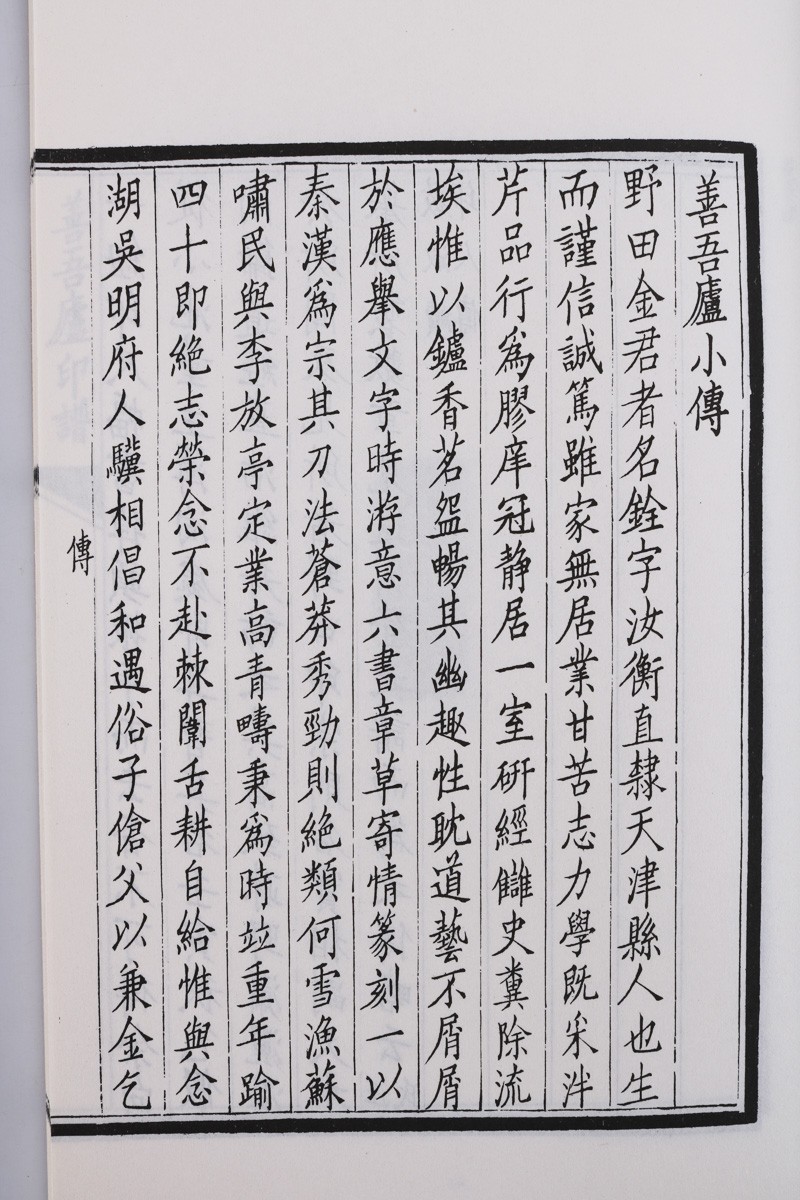 善吾廬小傳
野田金君者名銓字汝衡直隸天津縣人也生
而謹信誠篤雖家無居業甘苦志力學既采泮
芹品行爲膠庠冠静居一室研經讎史糞除流
埃惟以鑪香茗盌暢其幽趣性耽道藝不屑屑
於應舉文字時游意六書章草寄情篆刻一以
秦漢爲宗其刀法蒼莽秀勁則絕類何雪漁蘇
嘯民與李放亭定業高青疇秉爲時竝重年踰
四十即絕志榮念不赴棘闈舌耕自給惟與念
湖吳明府人驥相倡和遇俗子傖父以兼金乞
傳